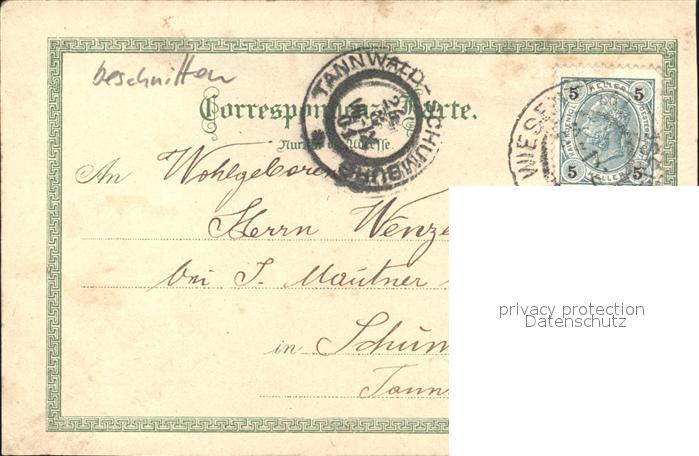 beschnitten
TANNWALD-SCHUMBURG
Correspondenz-Karte.
Nur für die Adresse.
WIESE
5 HELLER 5
5 HELLER 5
An Wohlgeboren
Herrn Wenze
bei J. Mautner
in Schum
Tann
privacy protection
Datenschutz